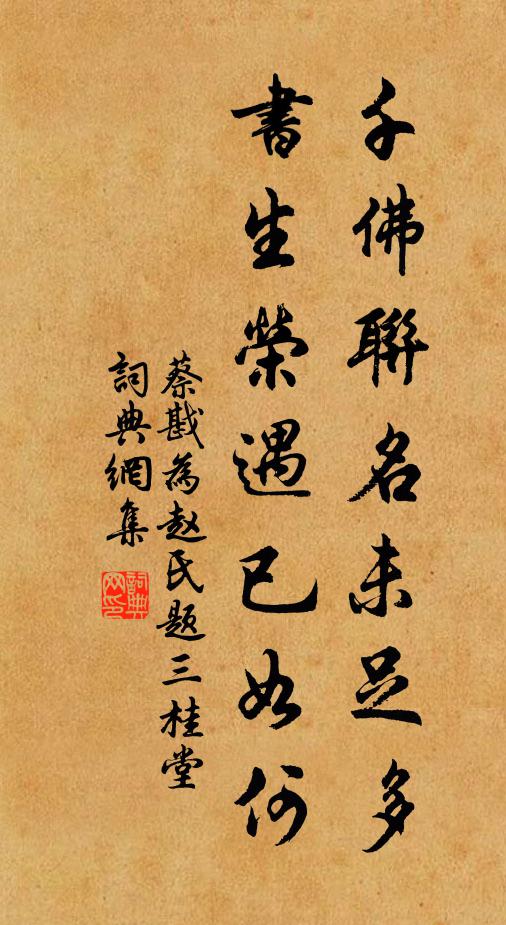 千佛聯名未足多
書生榮遇已如何
蔡戡為赵氏题三桂堂
詞典網集
詞典网印